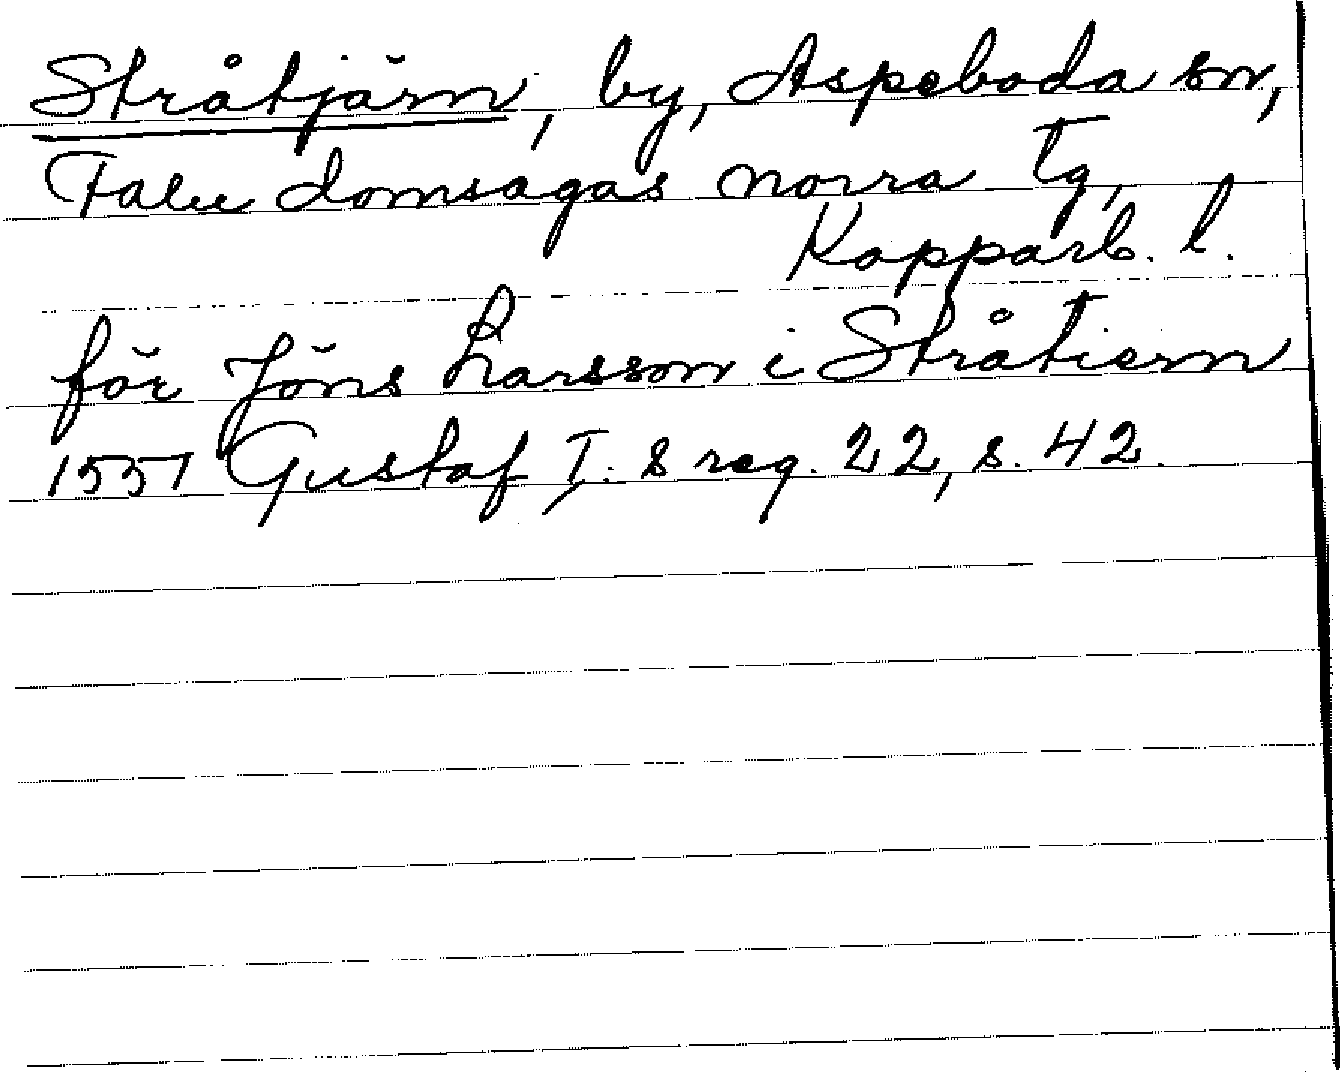 Stråtjärn, by, Aspeboda sn,
Falu domsagas norra tg,
Kopparb. l.
för Jöns Larsson i Stråtiern
1551 Gustaf I: s reg. 22, s. 42.